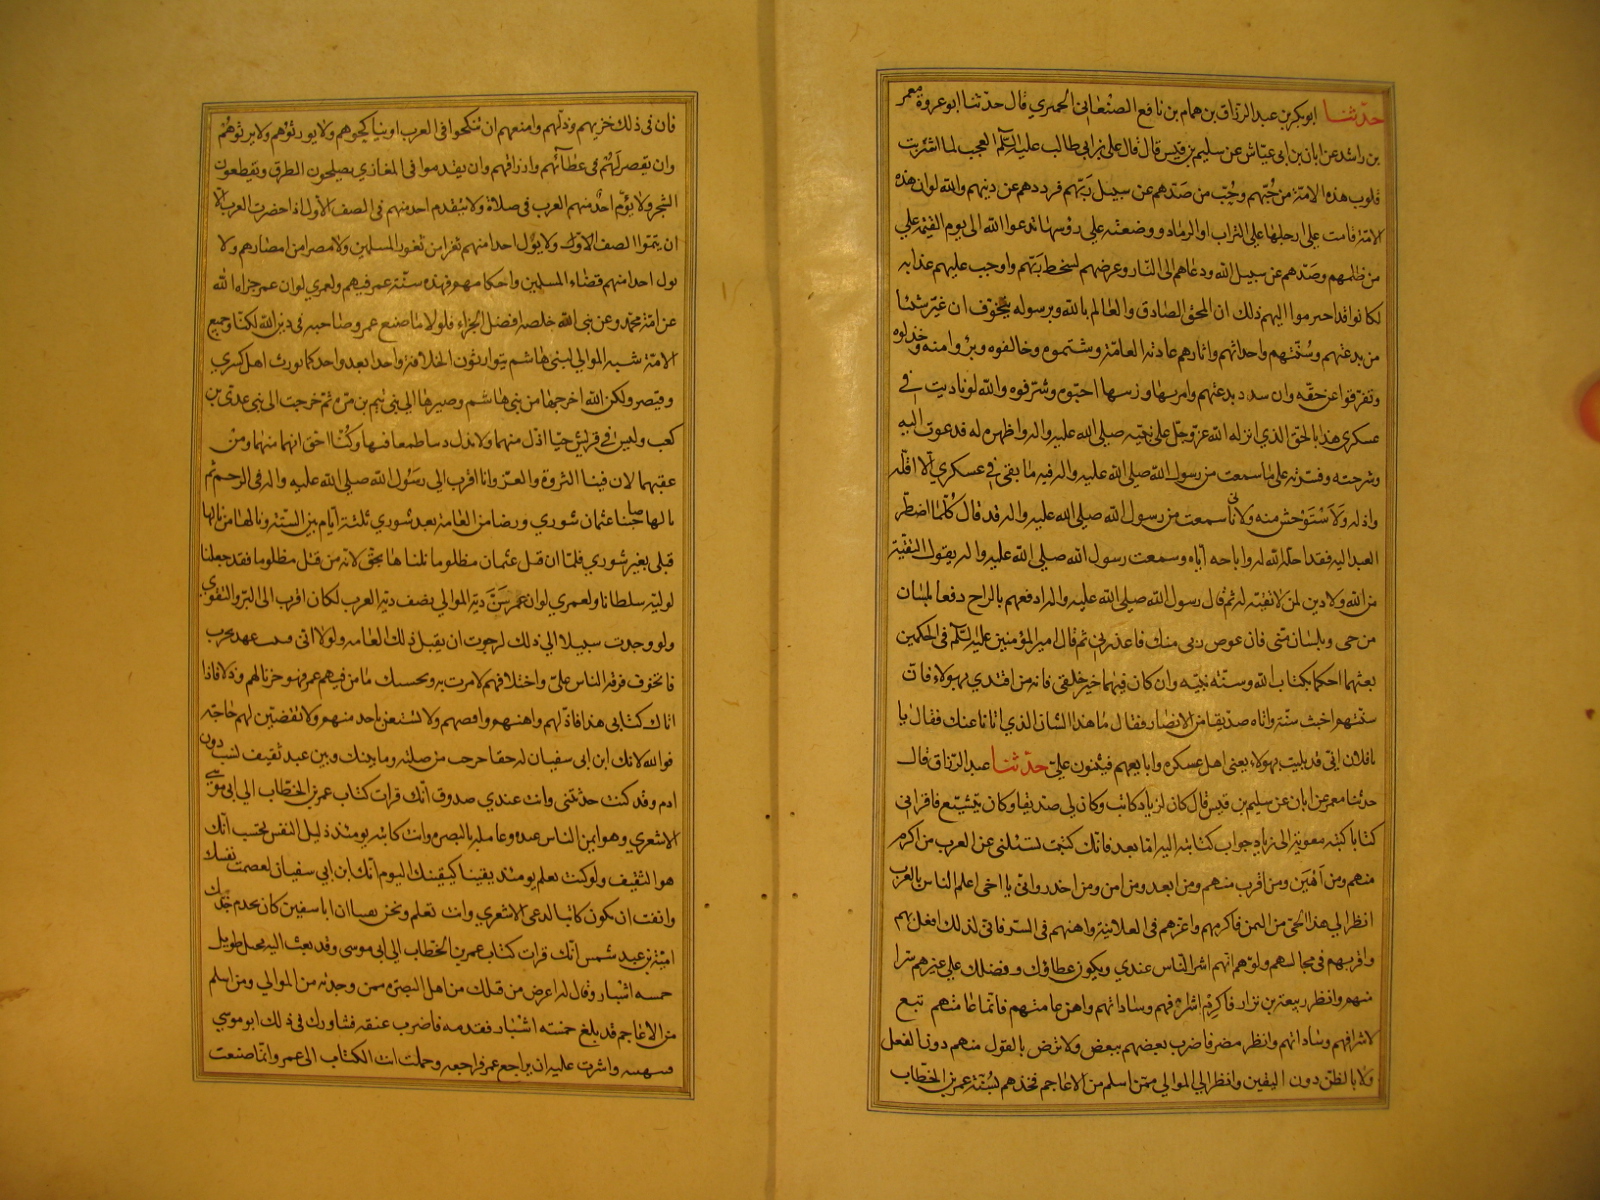 حدثنا ابوبكر بن عبد الرزاق بن همام بن نافع الصنعاني الحميري قال حدثنا ابو عروة معمر
بن راشد عن ابان بن ابي عياش عن سليم بن قيس قال قال علي بن ابي طالب عليه السلم العجب لما اشربت
قلوب هذه الامة من حبهم وحب من صدهم عن سبيل ربهم فرددهم عن دينهم والله لو ان هذه
الامة قامت على ارجلها على التراب او الرماد ووضعته على رؤسها تدعوا الله الى يوم القيمة على
من ظلمهم وصدهم عن سبيل الله ودعاهم الى النار وعرضهم لسخط ربهم واوجب عليهم عذابه
لكانوا قد احرموا اليهم ذلك ان المحق الصادق والعالم بالله وبرسوله يتخوف ان غير شيئا
من بدعتهم وسنتهم واحداثهم واثارهم عادته العامة وشتموه وخالفوه وبرؤا منه وخذلوه
وتفرقوا عن حقه وان سدد بدعتهم وامر بها وزينها احبوه وشرفوه والله لو ناديت في
عسكري هذا بالحق الذي انزله الله عز وجل على نبيه صلى الله عليه واله واظهره له فدعوت اليه
وشرحته وفسرته على ما سمعت من رسول الله صلى الله عليه واله فيه ما بقى في عسكري الا اقله
واذله ولاستوحش منه ولاني سمعت من رسول الله صلى الله عليه واله قد قال كلما اضطر
العبد اليه فقد احله الله له واباحه اياه وسمعت رسول الله صلى الله عليه واله يقول التقية
من الله ولا دين لمن لا تقية له ثم قال رسول الله صلى الله عليه واله ادفعهم بالراح دفعا لمبسان
من حي وبلسان متى فان عوص ربي منك فاعذرني ثم قال امير المؤمنين عليه السلم في الحكمين
بعثهما احكما بكتاب الله وسنة نبيه وان كان فيهما خير خلقي فانه من اقتدي بهولاء فات
سنتهم اخبث سنة واتاه صديقا من الانصار فقال ما هذا الشان الذي اتانا عنك فقال يا
يا فلان اني قد بليت بهولاء يعني اهل عسكره وابايعهم فيثنون علي حدثنا عبد الرزاق قال
حدثنا معمر عن ابان عن سليم بن قيس قال كان لزياد كاتب وكان لي صديقا وكان يتشيع فاقراني
كتابا كتبه معوية الى زياد جواب كتابه اليه اما بعد فانك كتبت تسئلني عن العرب من اكرم
منهم ومن اهين ومن اقرب منهم ومن ابعد ومن امن ومن احذر واني يا اخي اعلم الناس بالعرب
انظر الى هذا الحي من اليمن فاكرمهم واعزهم في العلانية واهنهم في السر فاني لذلك افعل بهم
واقربهم في مجالسهم ولوهم انهم اشر الناس عندي ويكون عطاؤك وفضلك على غيرهم سرا
منهم وانظر ربيعة بن نزار فاكرم اشرافهم وساداتهم واهن عامتهم فانما عامتهم تبع
لاشرافهم وساداتهم وانظر مضر فاضرب بعضهم ببعض ولا ترض بالقول منهم دون الفعل
ولا بالظن دون اليقين وانظر الى الموالي ممن اسلم من الاعاجم فخذهم بسنة عمر بن الخطاب
فان في ذلك خزيهم وذلهم وامنعهم ان ينكحوا في العرب او يناكحوهم ولا يورثوهم ولا يرثوهم
وان يقصر لهم في عطائهم وارزاقهم وان يقدموا في المغازي يصلحون الطرق ويقطعون
الشجر ولا يؤم احد منهم العرب في صلاة ولا يتقدم احد منهم في الصف الاول اذا حضرت العرب الا
ان يتموا الصف الاول ولا يول احدا منهم ثغرا من ثغور المسلمين ولا مصرا من امصارهم ولا
يول احدا منهم قضاء المسلمين واحكامهم فهذه سنة عمر فيهم ولعمري لو ان عمر جزاه الله
عن امة محمد وعن بني الله خلصه افضل الجزاء فلولا ما صنع عمر وصاحبه في دين الله لكنا وجميع
الامة شبه الموالي لبني هاشم يتوارثون الخلافة واحدا بعد واحد كما يورث اهل كسرى
وقيصر ولكن الله اخرجها من بني هاشم وصيرها الى بني تيم بن مرة ثم خرجت الى بني عدي بن
كعب وليس في قريش حيا اذل منهما ولا اندل فاطمعا فيها وكنا احق انهما منهما ومن
عقبهما لان فينا الثروة والعز وانا اقرب الى رسول الله صلى الله عليه واله في الرحم ثم
نالها صاحبنا عثمان شورى ورضا من العامة بعد شورى ثلثة ايام بين الستة ونالها من نالها
قبلى بغير شورى فلما ان قتل عثمان مظلوما نلناها بحق لانه من قتل مظلوما فقد جعلنا
لوليه سلطانا ولعمري لو ان عمر سن دية الموالي نصف دية العرب لكان اقرب الى البر والتقوى
ولو وجدت سبيلا الى ذلك لرجوت ان يقبل ذلك العامه ولولا اني عهد بحرب
فاتخوف فرقة الناس علي واختلافهم لامرت به وبحسبك ما من فيهم عمر فهو خزيا لهم وذلا فاذا
اتاك كتابي هذا فاذلهم واهنهم واقصهم ولا تستعن باحد منهم ولا تقضين لهم حاجة
فوالله لانك ابن ابي سفيان له حقا خرجت من صلبه وما بينك وبين عبد ثقيف نسب دون
ادم وقد كنت حدثتني وانت عندي صدوق انك قرات كتاب عمر بن الخطاب الى ابي موسى
الاشعري وهو ايمن الناس عنده وعامله بالبصره وانت كاتبه يومئذ ذليل النفس تحسب انك
هو الثقيف ولو كنت تعلم يومئذ يقينا كيقينك اليوم انك ابن ابي سفيان لعصمت نفسك
وانفت ان تكون كاتبا لدعى الاشعري وانت تعلم ونحن يقينا ان ابا سفين كان يخدم جدك
امية بن عبد شمس انك قرات كتاب عمر بن الخطاب الى ابي موسى وقد بعث اليه بحبل طويل
خمسه اشبار وقال له اعرض من قبلك من اهل البصره ممن وجدته من الموالي ومن اسلم
من الاعاجم قد بلغ خمسه اشبار فقدمه فاضرب عنقه فشاورك في ذلك ابو موسى
فنهيته واشرت عليه ان يراجع عمر فراجعه وحملت انت الكتاب الى عمر وانما صنعت